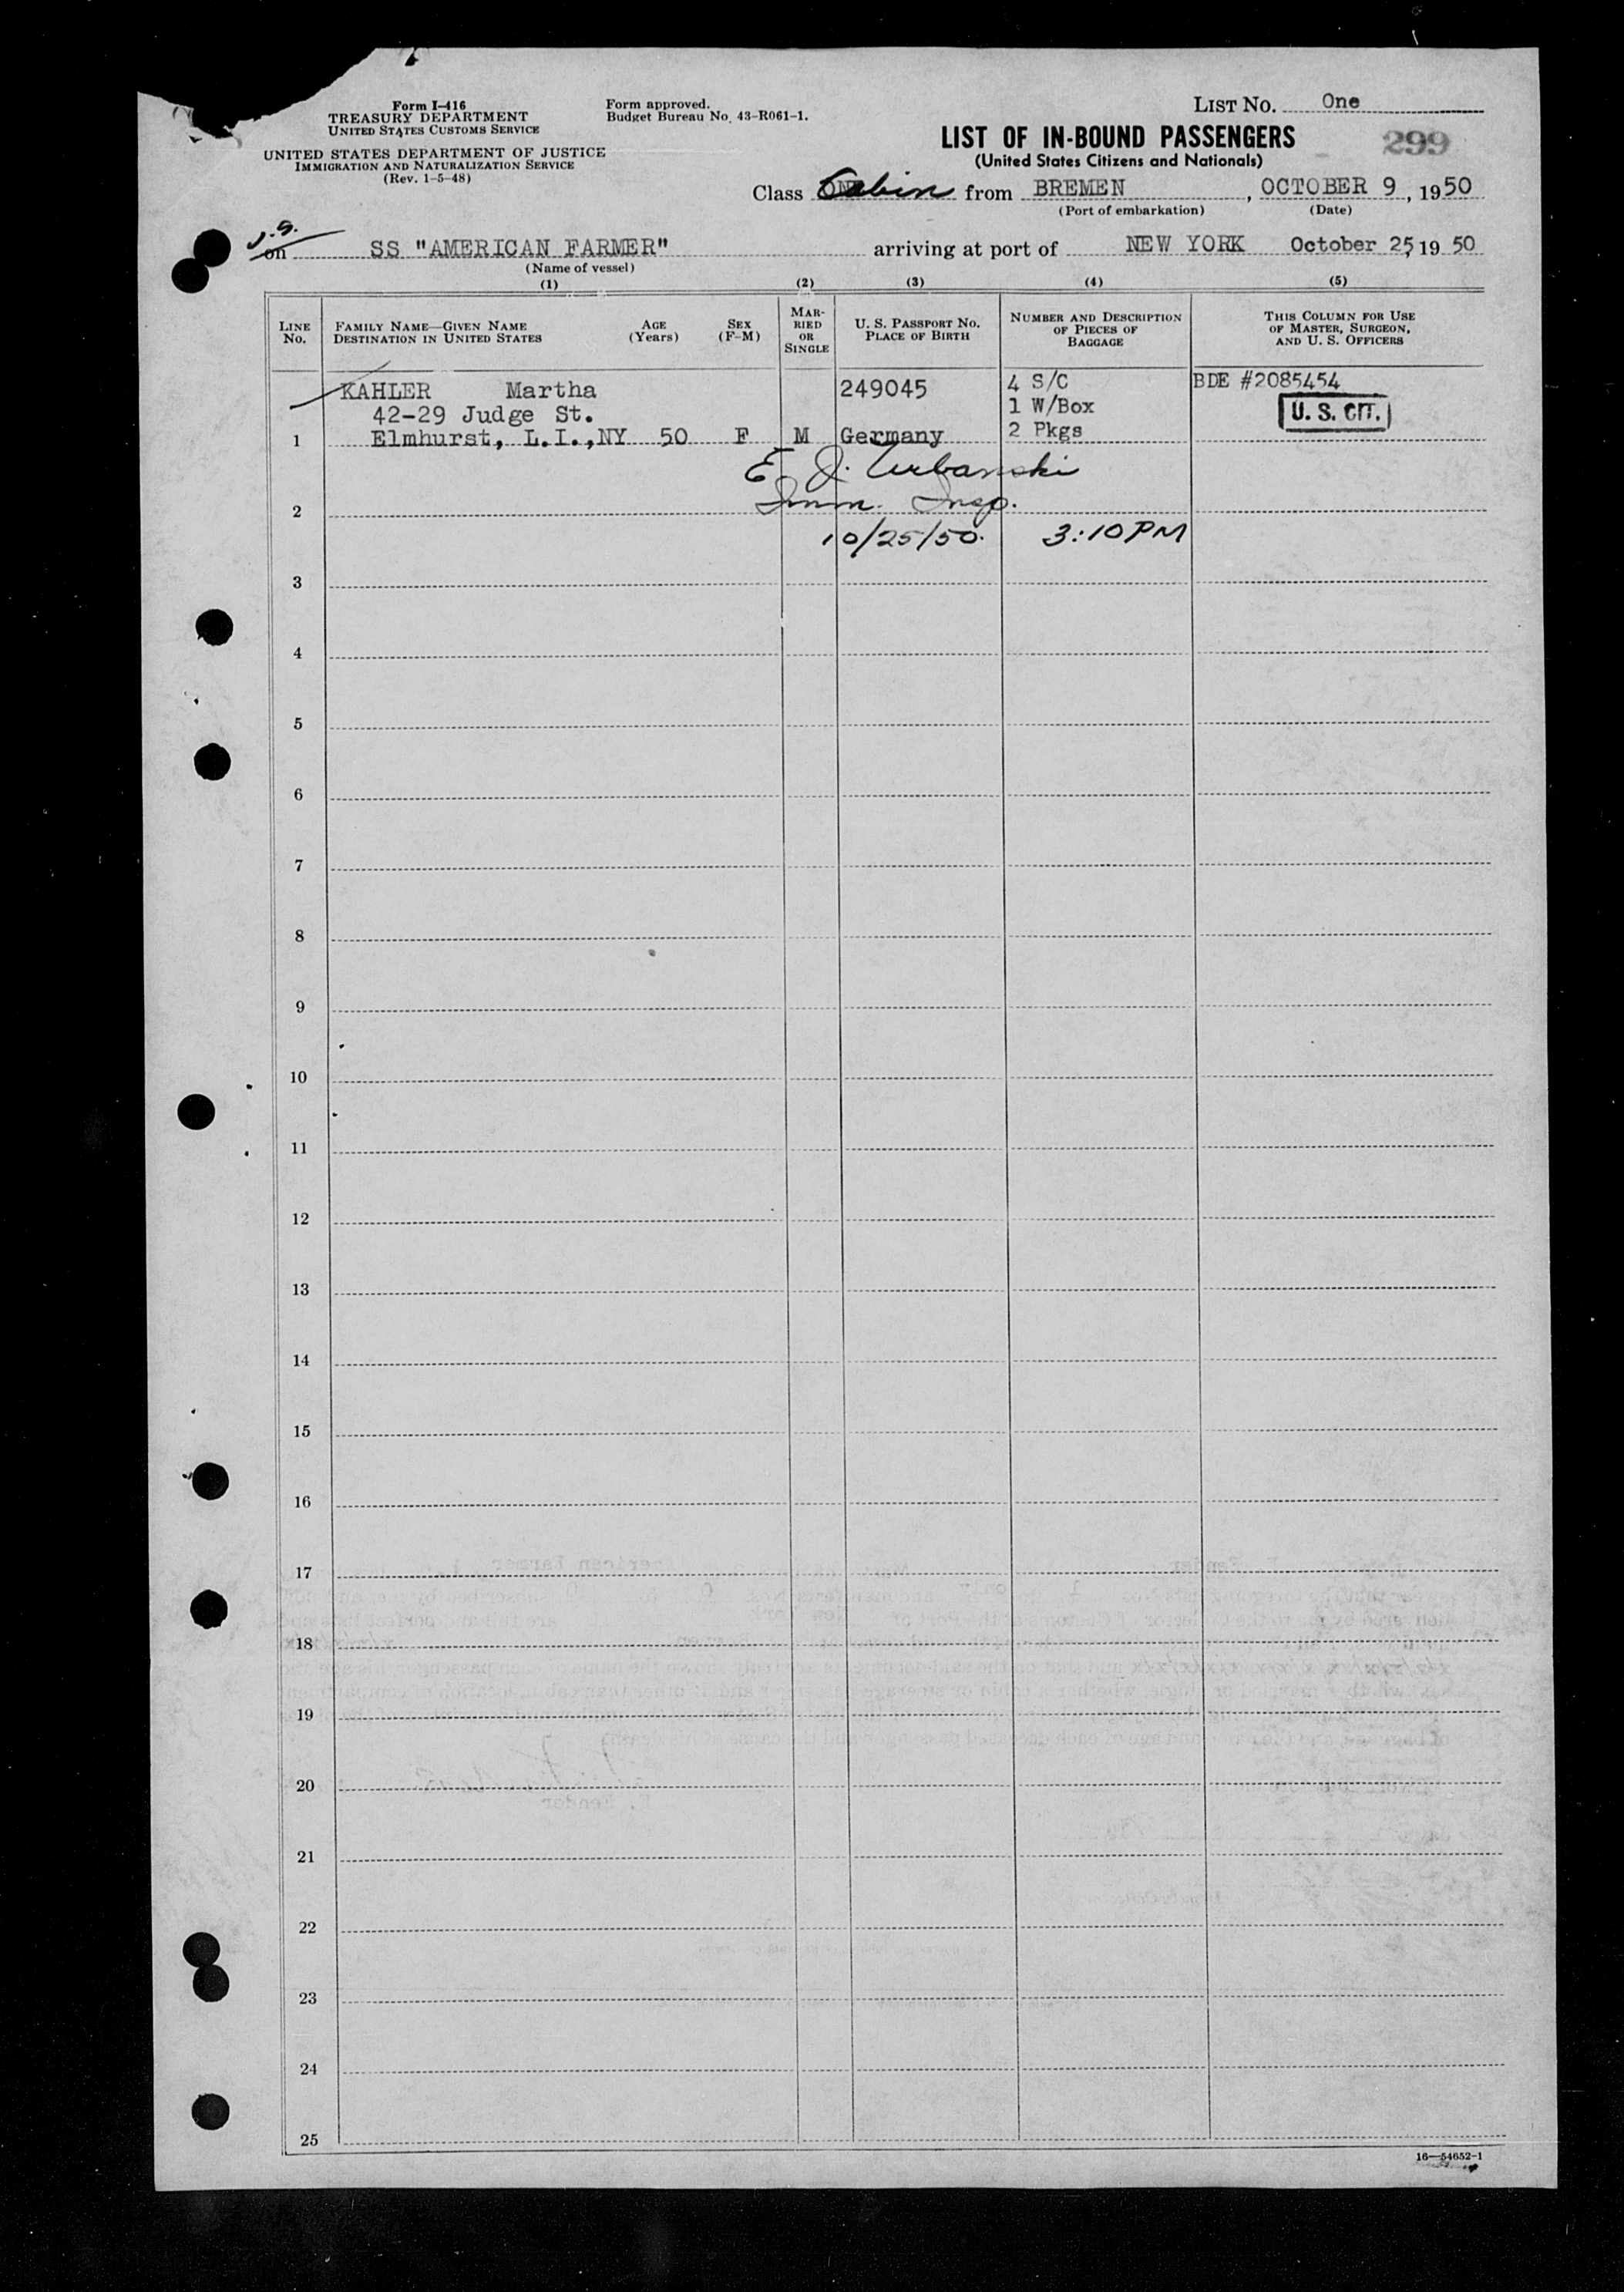 LIST No. One
Form I-416
TREASURY DEPARTMENT
UNITED STATES CUSTOMS SERVICE
Form approved.
Budget Bureau No. 43-R061-1.
UNITED STATES DEPARTMENT OF JUSTICE
IMMIGRATION AND NATURALIZATION SERVICE
(Rev. 1-5-48)
LIST OF IN-BOUND PASSENGERS
299
(United States Citizens and Nationals)
Class Cabin from BREMEN, OCTOBER 9, 1950
(Port of embarkation) (Date)
on SS "AMERICAN FARMER" arriving at port of NEW YORK October 25, 19 50
(Name of vessel)
(1) (2) (3) (4) (5)
LINE No.
FAMILY NAME—GIVEN NAME
DESTINATION IN UNITED STATES
AGE (Years)
SEX (F-M)
MARRIED OR SINGLE
U. S. PASSPORT No.
PLACE OF BIRTH
NUMBER AND DESCRIPTION OF PIECES OF BAGGAGE
THIS COLUMN FOR USE OF MASTER, SURGEON, AND U. S. OFFICERS
KAHLER Martha 249045 4 S/C BDE #2085454
42-29 Judge St. 1 W/Box U. S. CIT.
1 Elmhurst, L.I.,NY 50 F M Germany 2 Pkgs
E. J. Urbanski
2 Imm. Insp.
10/25/50. 3:10 PM
3
4
5
6
7
8
9
10
11
12
13
14
15
16
17
18
19
20
21
22
23
24
25
16—54652-1